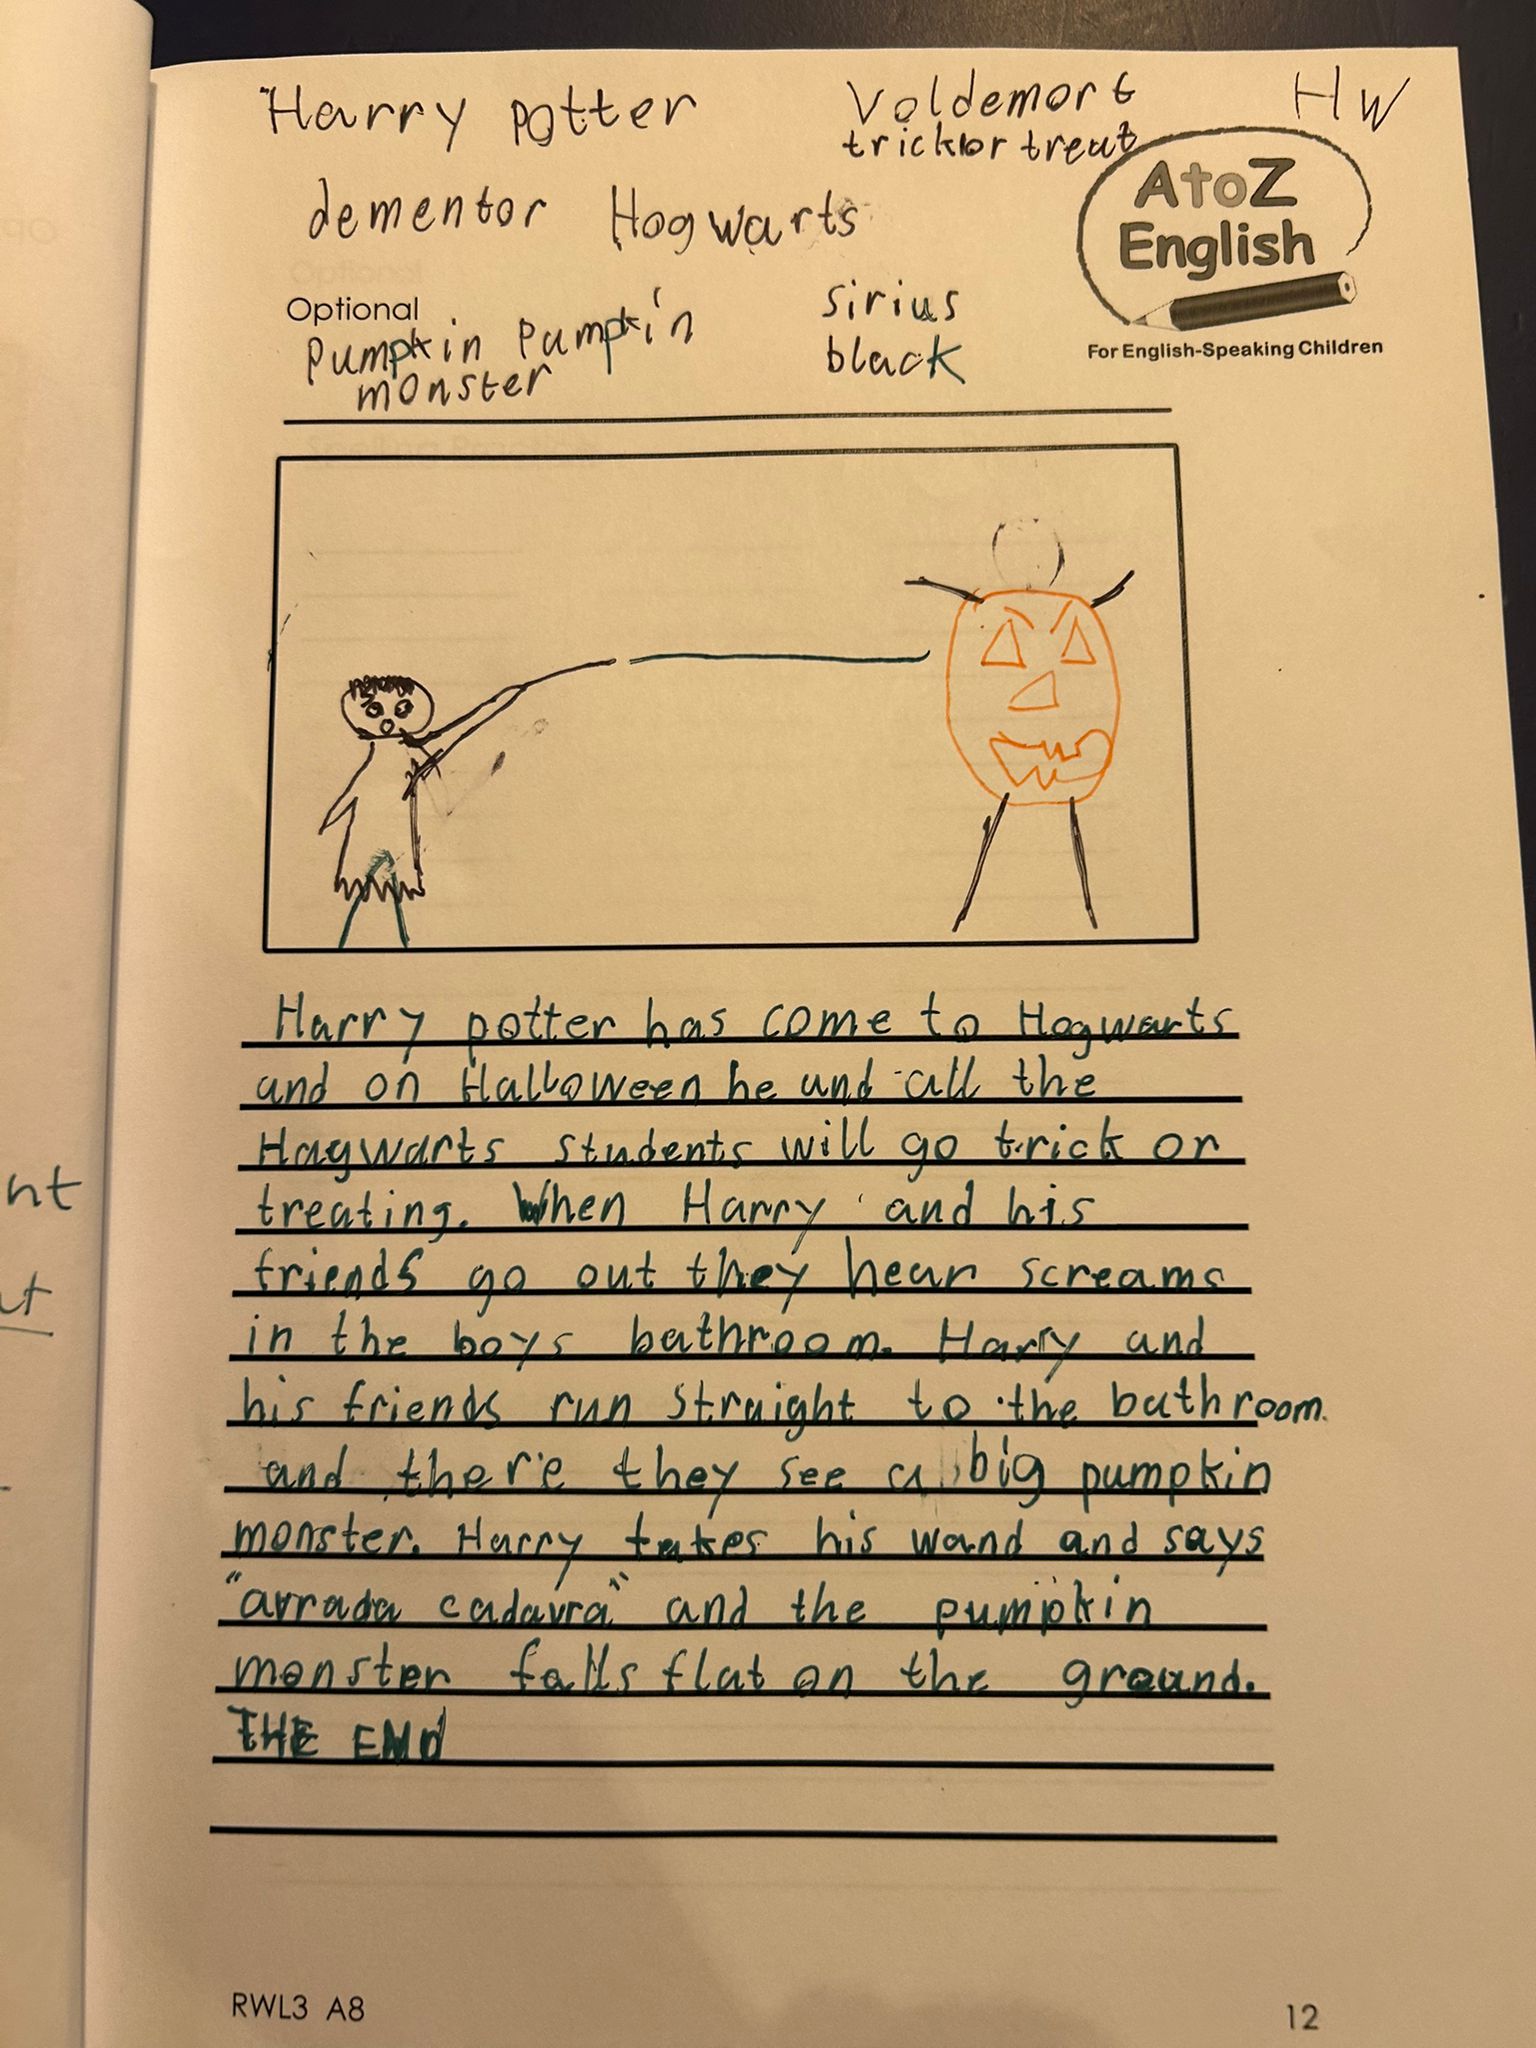 Harry potter
Voldemort
HW
trick or treat
dementor Hogwarts
AtoZ
English
For English-Speaking Children
Optional
Pumpkin Pumpkin
monster
sirius
black
Harry potter has come to Hogwarts
and on Halloween he and all the
Hogwarts students will go trick or
treating. When Harry and his
friends go out they hear screams
in the boys bathroom. Harry and
his friends run straight to the bathroom.
and there they see a big pumpkin
monster. Harry takes his wand and says
"avrada cadavra" and the pumpkin
monster falls flat on the ground.
THE END
nt
RWL3 A8
12